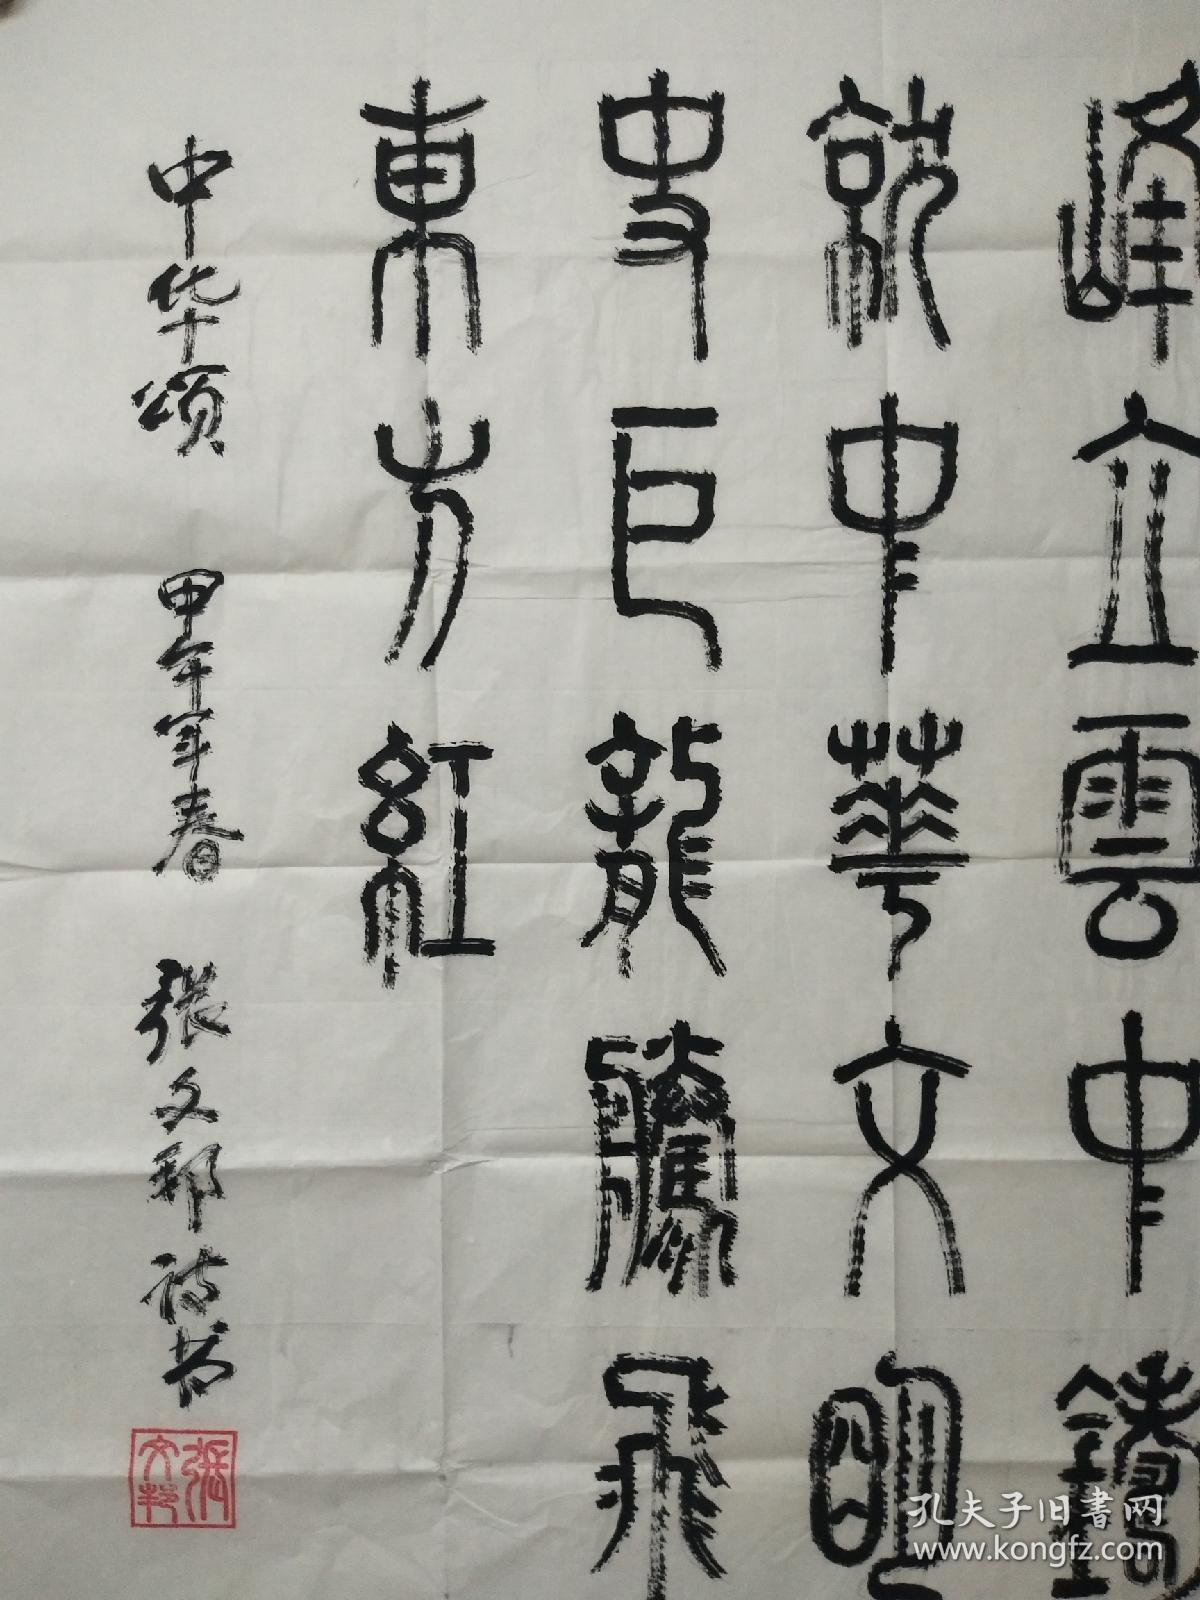 峰立雲中鑄
就中華文明
史巨龍騰飛
東方紅
中华颂 甲午年春 张文邦诗书
張文邦
孔夫子旧書网
www.kongfz.com